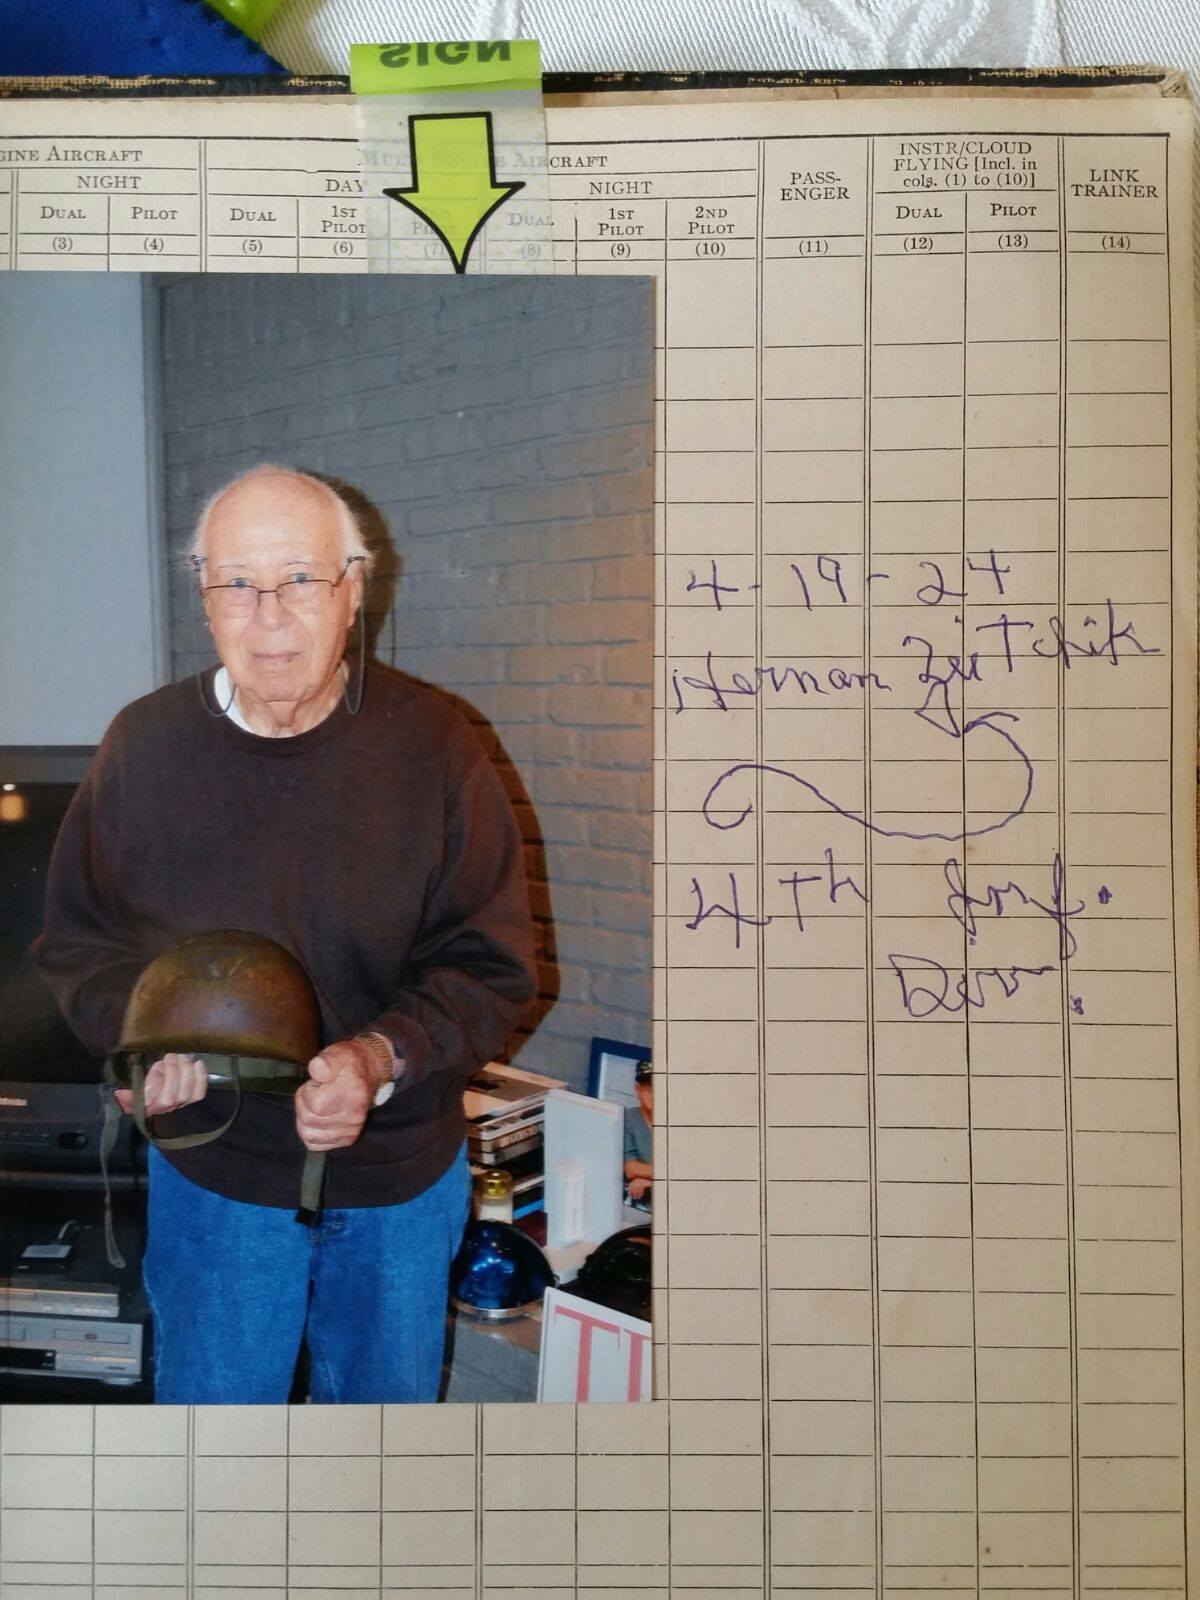 SIGN
GINE AIRCRAFT
MULTI-ENGINE AIRCRAFT
NIGHT
DAY
NIGHT
DUAL
PILOT
DUAL
1ST PILOT
DUAL
1ST PILOT
2ND PILOT
(3)
(4)
(5)
(6)
(7)
(8)
(9)
(10)
PASS-
ENGER
(11)
INSTR/CLOUD
FLYING [Incl. in
cols. (1) to (10)]
DUAL
PILOT
(12)
(13)
LINK
TRAINER
(14)
4-19-24
Herman Zeitchik
4Th Inf.
Div.